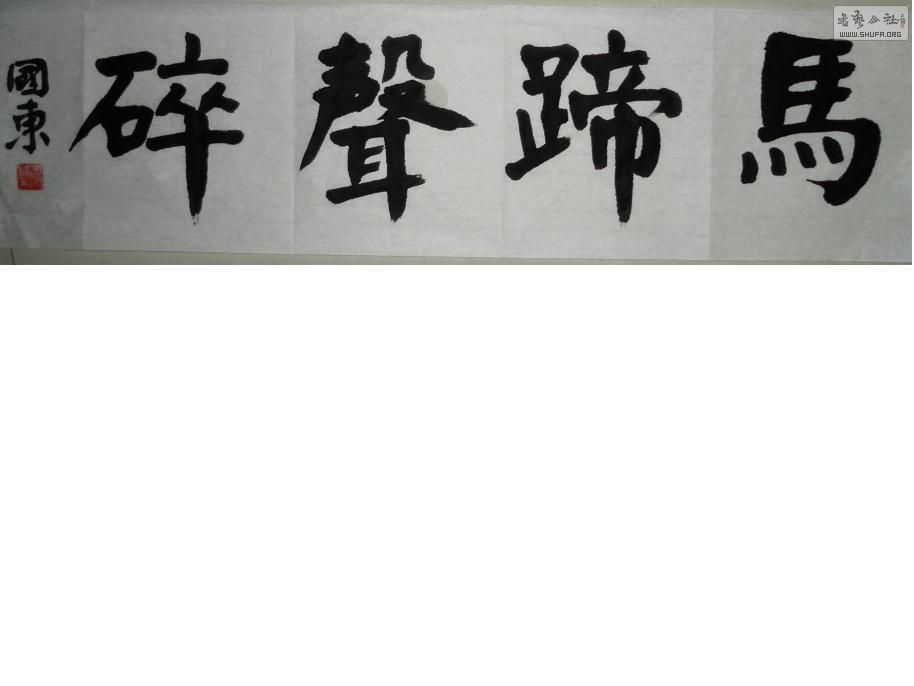 馬蹄聲碎
國東
書藝公社
WWW.SHUFA.ORG